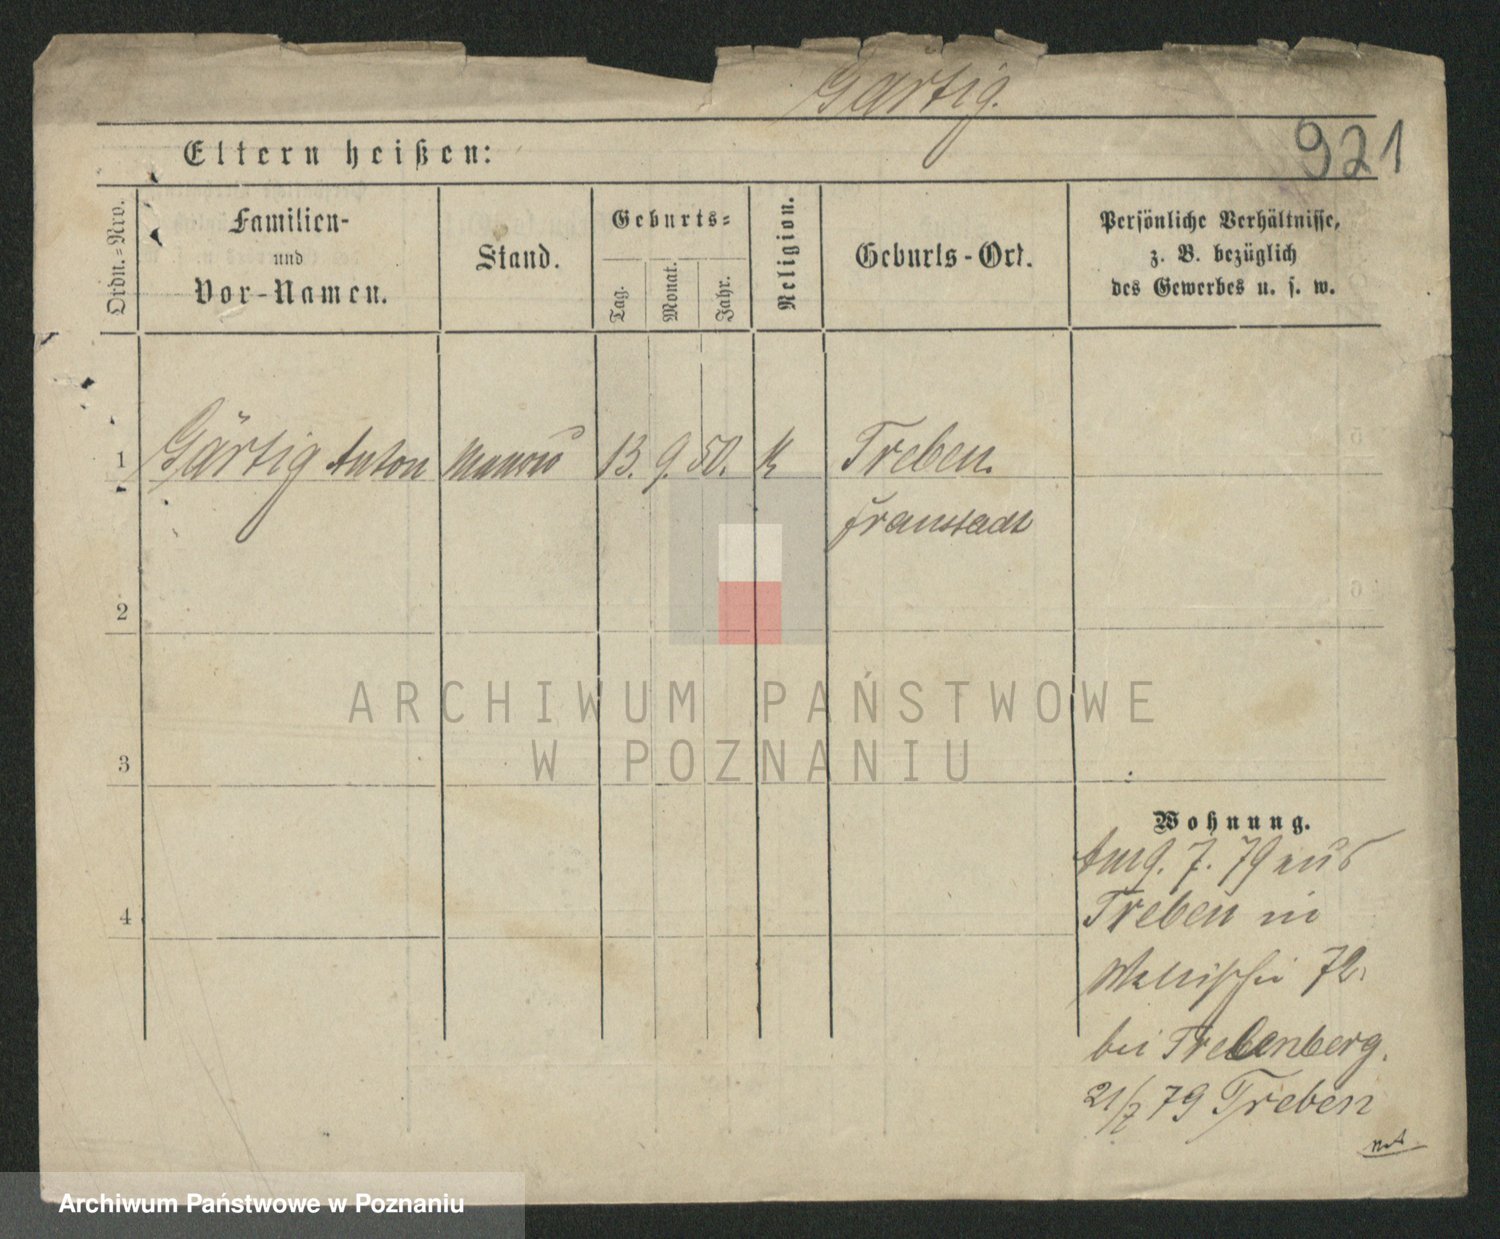 Gärtig.
921
Eltern heißen:
Ordn.-Nro.
Familien-
und
Vor-Namen.
Stand.
Geburts-
Tag.
Monat.
Jahr.
Religion.
Geburts-Ort.
Persönliche Verhältnisse,
z. B. bezüglich
des Gewerbes u. s. w.
1 Gärtig Anton 13. 9. 50. K Treben.
Fraustadt
2
3
4
Wohnung.
9. 7. 79 aus
Treben in
Wallischei 72.
bei Trebenberg.
21/7 79 Treben
ARCHIWUM PAŃSTWOWE
W POZNANIU
Archiwum Państwowe w Poznaniu